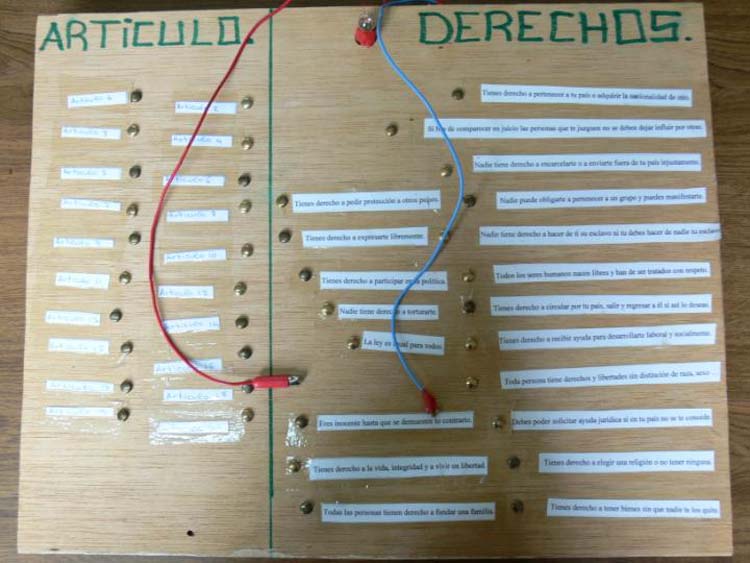 ARTiCULO.
Articulo 2
Articulo 3
Articulo 4
Articulo 5
Articulo 6
Articulo 7
Articulo 8
Articulo 9
Articulo 10
Articulo 11
Articulo 12
Articulo
Articulo
Articulo
Articulo
Articulo
Articulo 18
Articulo
DERECHOS.
Tienes derecho a pertenecer a tu país o adquirir la nacionalidad de otro.
Si has de comparecer en juicio las personas que te juzguen no se deben dejar influir por otras.
Nadie tiene derecho a encarcelarte o a enviarte fuera de tu país injustamente.
Tienes derecho a pedir protección a otros países.
Nadie puede obligarte a pertenecer a un grupo y puedes manifestarte.
Tienes derecho a expresarte libremente.
Nadie tiene derecho a hacer de ti su esclavo ni tu debes hacer de nadie tu esclavo
Tienes derecho a participar en la política.
Todos los seres humanos nacen libres y han de ser tratados con respeto.
Nadie tiene derecho a torturarte.
Tienes derecho a circular por tu país, salir y regresar a él si así lo deseas.
La ley es igual para todos.
Tienes derecho a recibir ayuda para desarrollarte laboral y socialmente.
Toda persona tiene derechos y libertades sin distinción de raza, sexo ...
Eres inocente hasta que se demuestre lo contrario.
Debes poder solicitar ayuda jurídica si en tu país no se te concede.
Tienes derecho a la vida, integridad y a vivir en libertad.
Tienes derecho a elegir una religión o no tener ninguna.
Todas las personas tienen derecho a fundar una familia.
Tienes derecho a tener bienes sin que nadie te los quite.